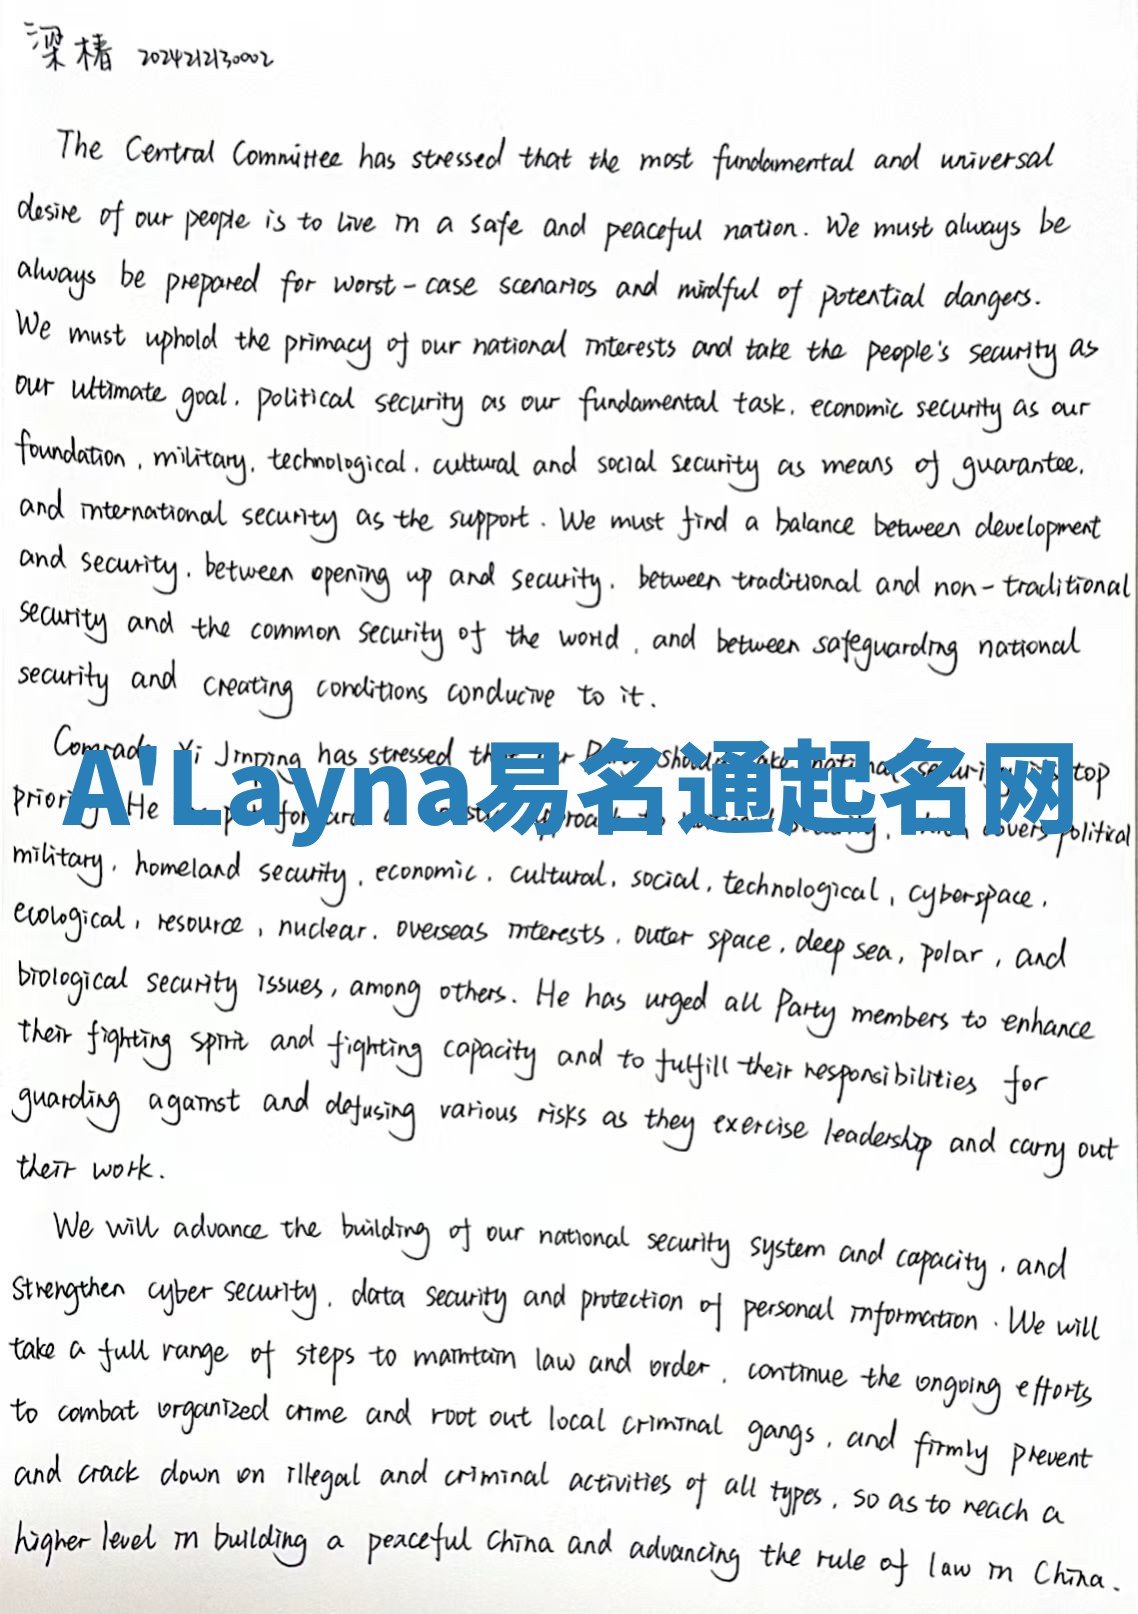 梁椿 2024212130002
The Central Committee has stressed that the most fundamental and universal
desire of our people is to live in a safe and peaceful nation. We must always be
always be prepared for worst-case scenarios and mindful of potential dangers.
We must uphold the primacy of our national interests and take the people's security as
our ultimate goal, political security as our fundamental task, economic security as our
foundation, military, technological, cultural and social security as means of guarantee,
and international security as the support. We must find a balance between development
and security, between opening up and security, between traditional and non-traditional
security and the common security of the world, and between safeguarding national
security and creating conditions conducive to it.
Comrade Xi Jinping has stressed should national top
A'Layna易名通起名网
He covers political
military, homeland security, economic, cultural, social, technological, cyberspace,
ecological, resource, nuclear, overseas interests, outer space, deep sea, polar, and
biological security issues, among others. He has urged all Party members to enhance
their fighting spirit and fighting capacity and to fulfill their responsibilities for
guarding against and defusing various risks as they exercise leadership and carry out
their work.
We will advance the building of our national security system and capacity, and
strengthen cyber security, data security and protection of personal information. We will
take a full range of steps to maintain law and order, continue the ongoing efforts
to combat organized crime and root out local criminal gangs, and firmly prevent
and crack down on illegal and criminal activities of all types, so as to reach a
higher level in building a peaceful China and advancing the rule of law in China.